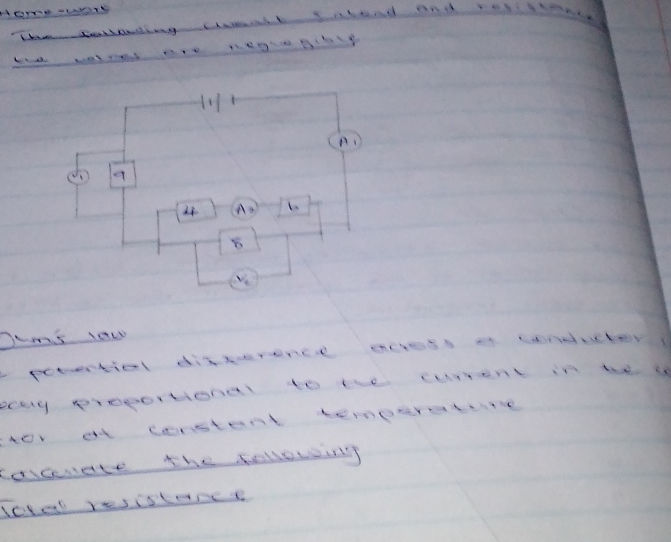 Home-work
The following circuit internal and resistance
the wires are negregible
A1
V1
9
4
A2
6
8
V2
Ohm's law
potential difference across a conductor
proportional to the current in the
at constant temperature
calculate the following
Total resistance